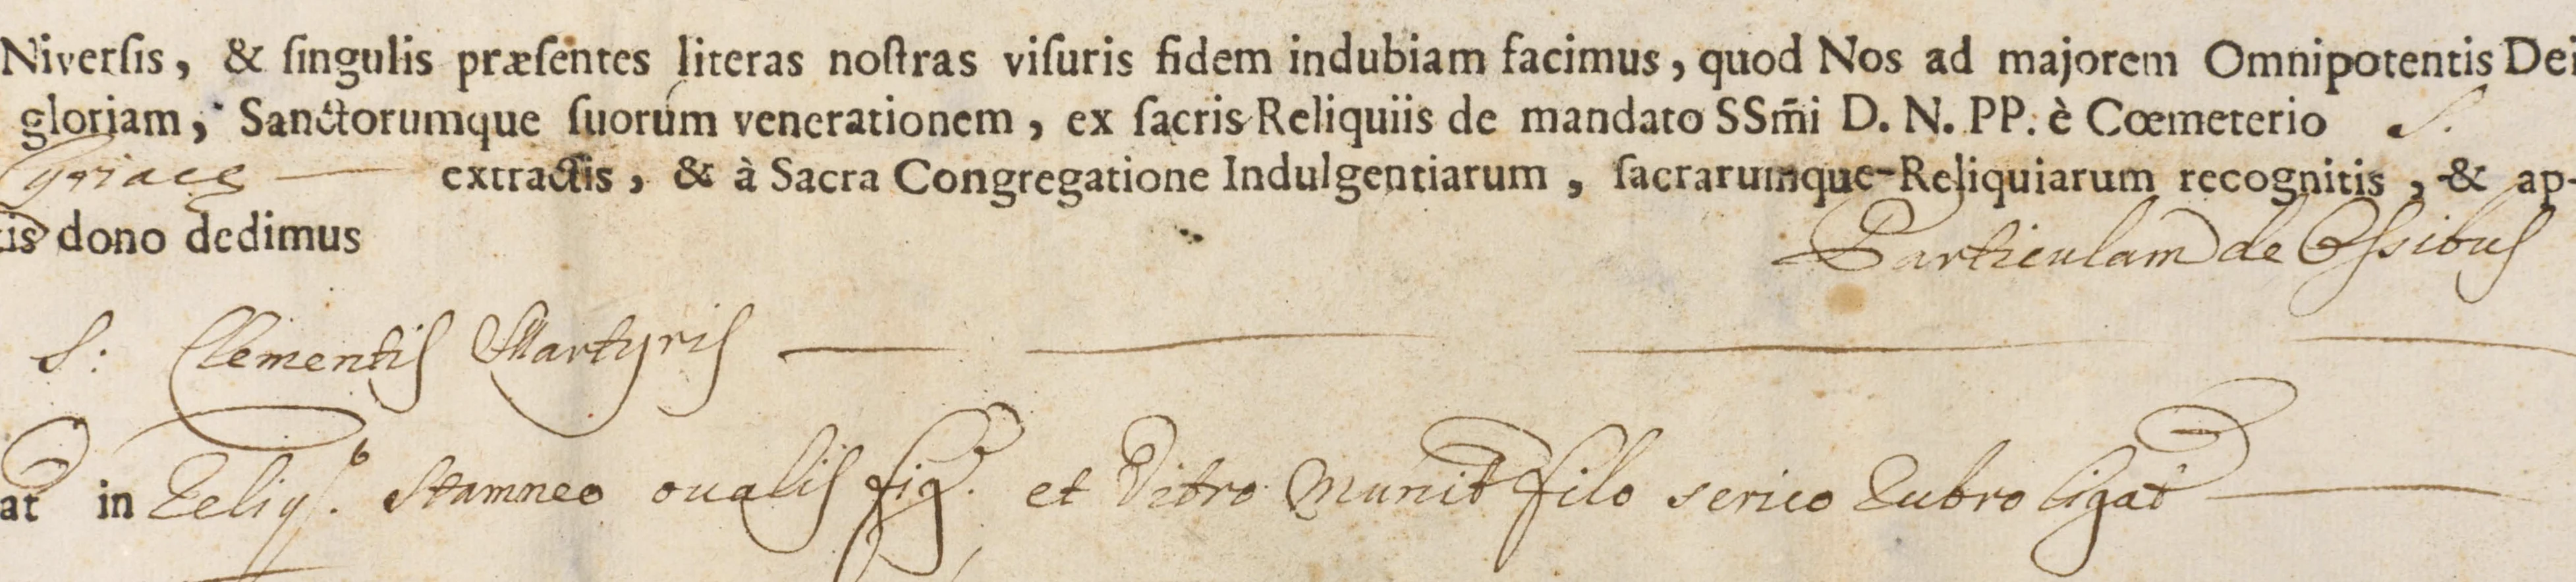 Niverſis, & ſingulis præſentes literas noſtras viſuris fidem indubiam facimus, quod Nos ad majorem Omnipotentis Dei
gloriam, Sanctorumque ſuorum venerationem, ex ſacris Reliquiis de mandato SSm̃i D. N. PP. è Cœmeterio S.
Cyriacę extractis, & à Sacra Congregatione Indulgentiarum, ſacrarumque Reliquiarum recognitis, & ap-
is dono dedimus Particulam de Oſsibus
S: Clementis Martyris
at in Reliq.º Stamneo oualis fig. et Vitro munit filo serico Rubro ligat